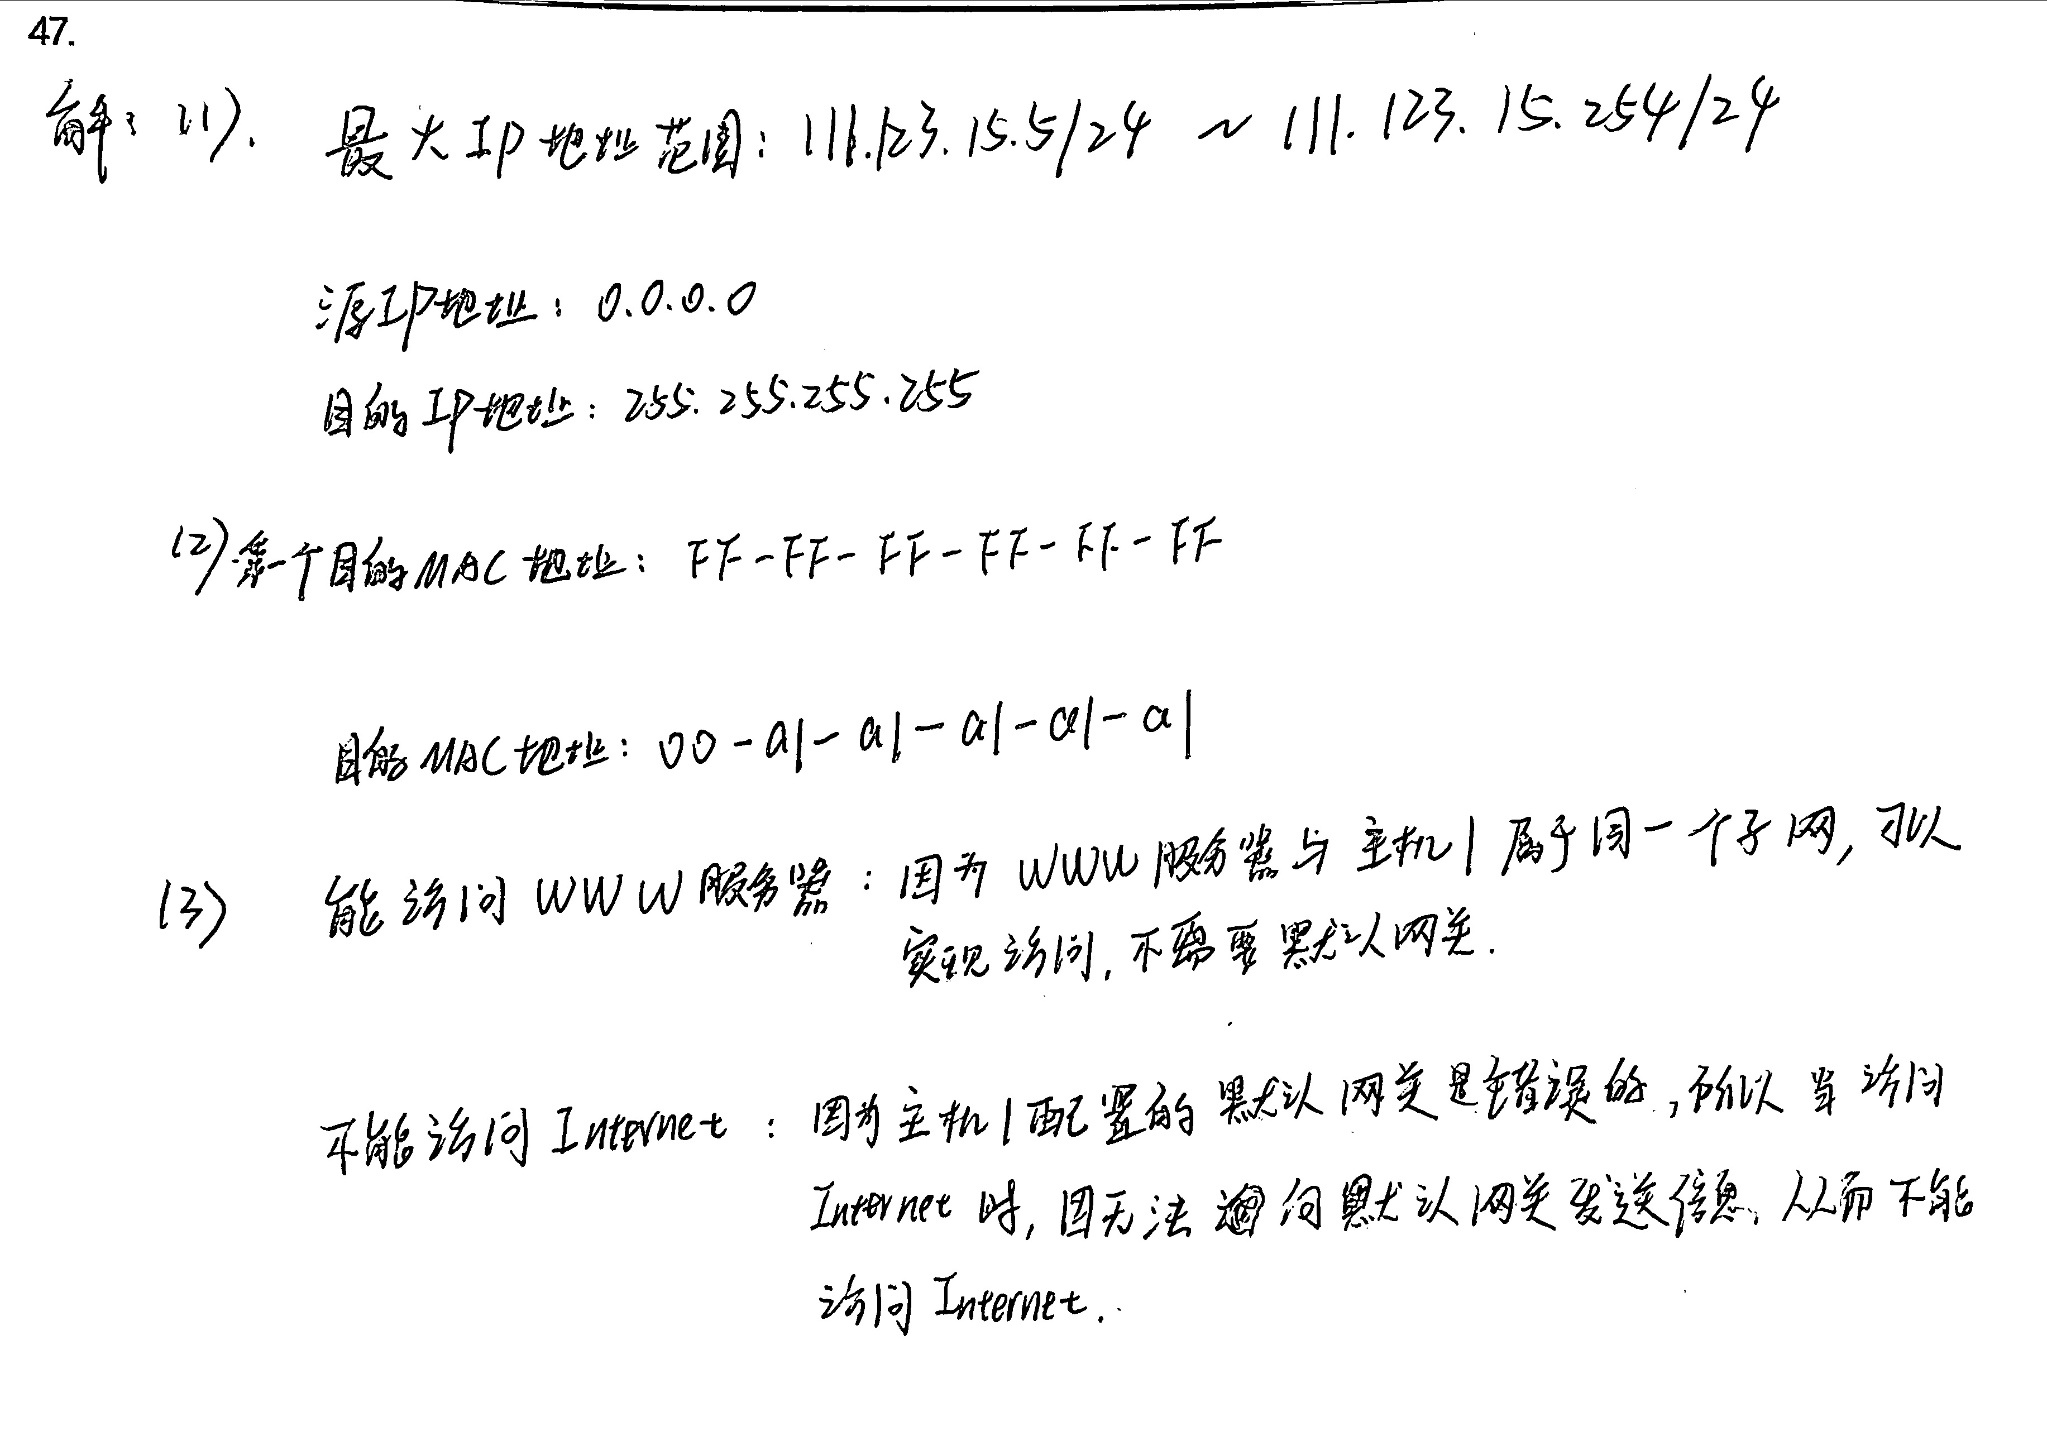 47.
解：(1). 最大IP地址范围：111.123.15.5/24 ~ 111.123.15.254/24
源IP地址：0.0.0.0
目的IP地址：255.255.255.255
(2) 第一个目的MAC地址：FF-FF-FF-FF-FF-FF
目的MAC地址：00-a1-a1-a1-a1-a1
(3) 能访问WWW服务器：因为WWW服务器与主机1属于同一个子网，可以
实现访问，不需要默认网关.
不能访问Internet：因为主机1配置的默认网关是错误的，所以当访问
Internet时，因无法向默认网关发送信息，从而不能
访问Internet.